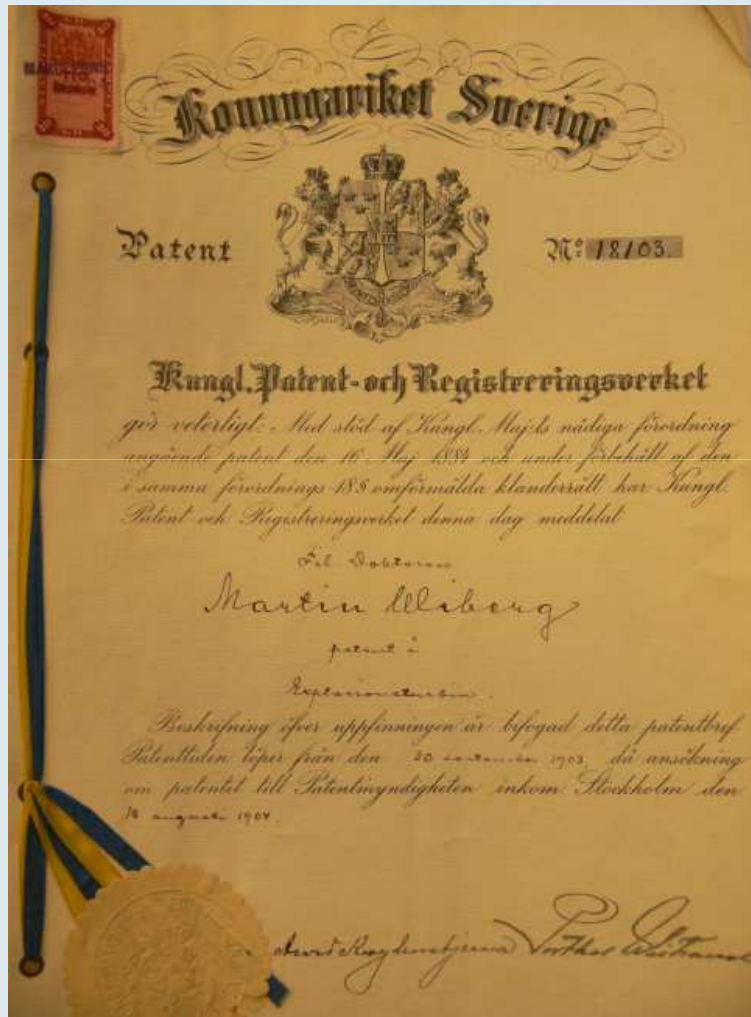 Konungariket Sverige
Patent
No 18103.
Kungl. Patent- och Registreringsverket
gör veterligt: Med stöd af Kungl. Maj:ts nådiga förordning
angående patent den 16 Maj 1884 och under förbehåll af den
i samma förordnings 18 § omförmälda klanderrätt har Kungl.
Patent och Registreringsverket denna dag meddelat
Fil. Doktoren
Martin Wiberg
patent å
Explosionsturbin.
Beskrifning öfver uppfinningen är bifogad detta patentbref
Patenttiden löper från den 30 september 1903, då ansökning
om patentet till Patentmyndigheten inkom. Stockholm den
augusti 1904